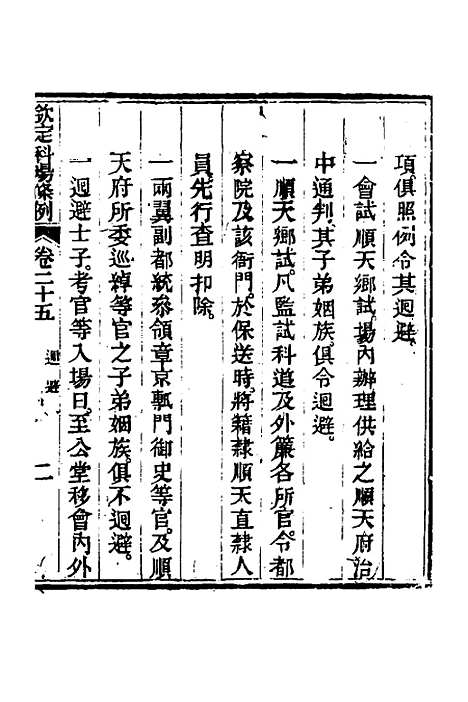 項俱照例令其迴避。
一會試順天鄉試場內辦理供給之順天府治
中通判其子弟姻族俱令迴避。
一順天鄉試凡監試科道及外簾各所官令都
察院及該衙門於保送時將籍隸順天直隸人
員先行查明扣除。
一兩翼副都統叅領章京甎門御史等官及順
天府所委巡綽等官之子弟姻族俱不迴避。
一迴避士子考官等入場日至公堂移會內外
欽定科場條例 卷二十五 迴避 二